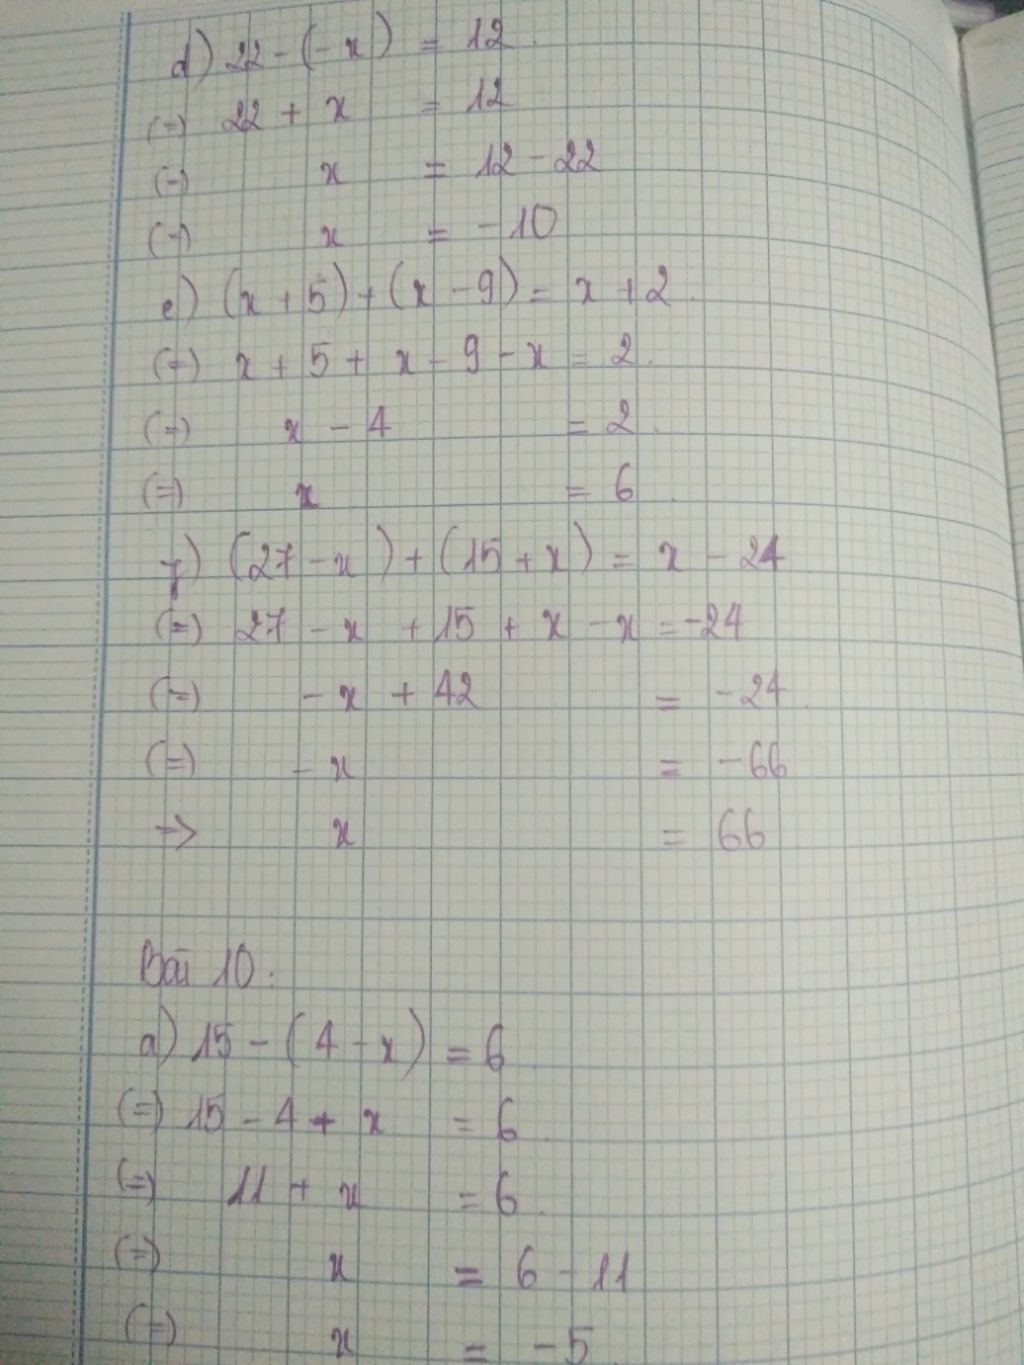 d) 22 - (-x) = 12.
(=) 22 + x = 12
(=) x = 12 - 22
(=) x = -10
e) (x + 5) + (x - 9) = x + 2.
(=) x + 5 + x - 9 - x = 2.
(=) x - 4 = 2.
(=) x = 6.
f) (27 - x) + (15 + x) = x - 24
(=) 27 - x + 15 + x - x = -24
(=) - x + 42 = -24.
(=) - x = -66
=> x = 66
Bài 10:
a) 15 - (4 - x) = 6
(=) 15 - 4 + x = 6.
(=) 11 + x = 6.
(=) x = 6 - 11
(=) x = -5